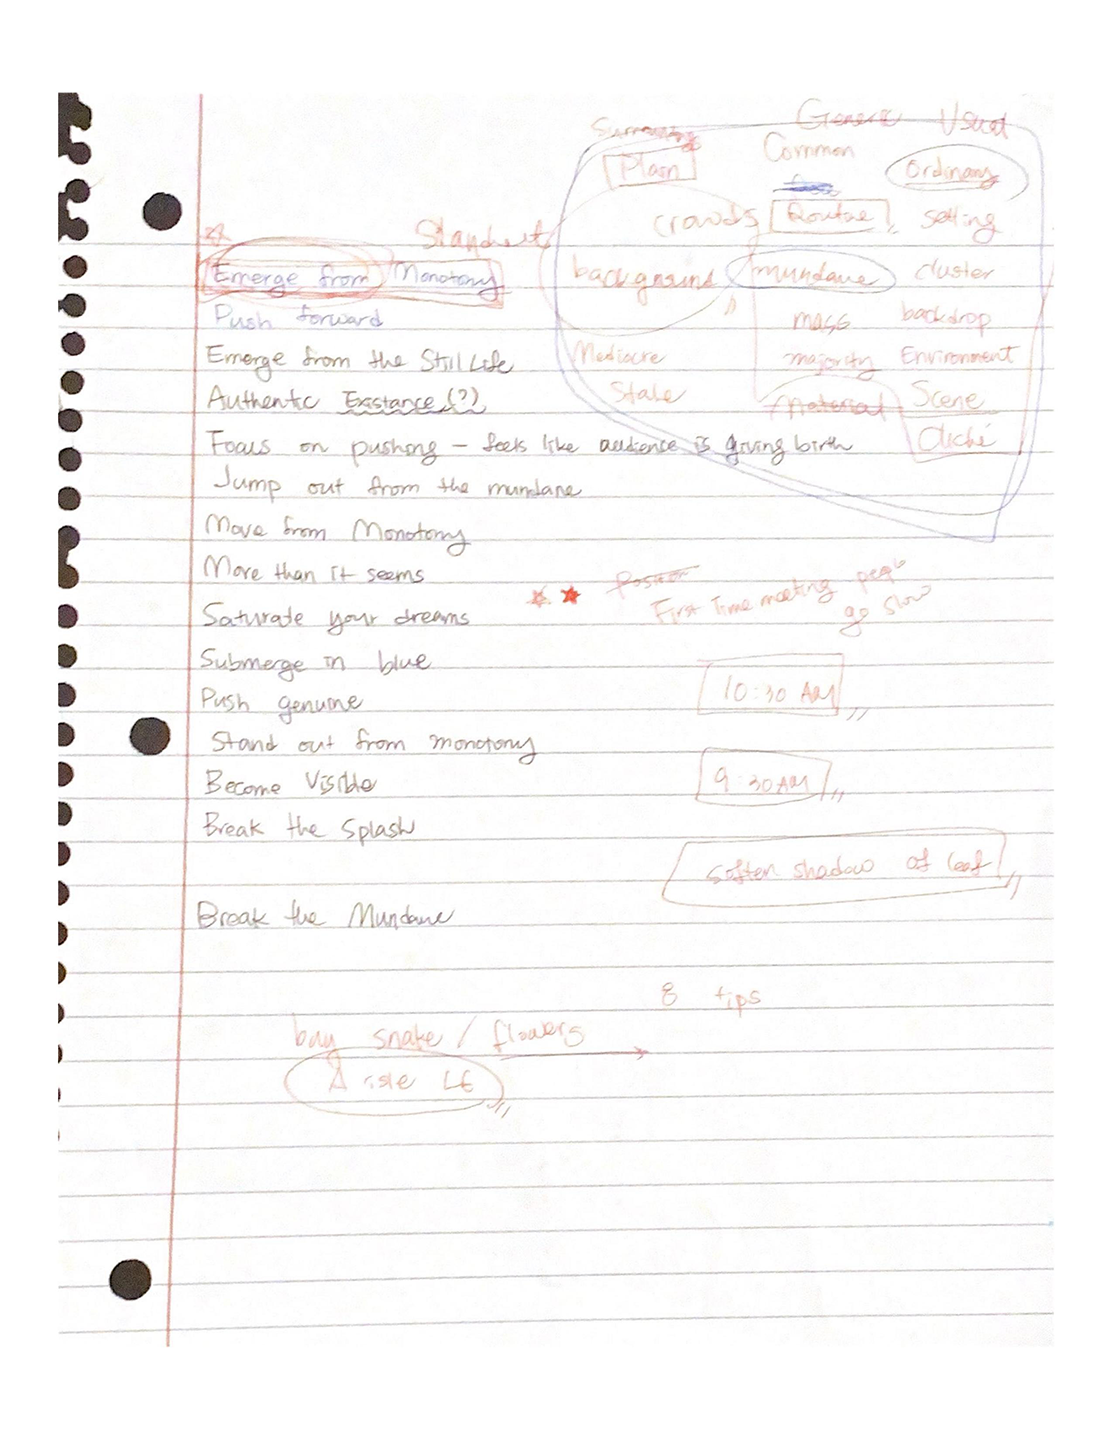 Generic Usual
Common
Plain Ordinary
crowds Routine setting
Standout
background mundane cluster
Emerge from Monotony
Push forward
mass backdrop
Mediocre majority Environment
Emerge from the Still Life
Stale Material Scene
Authentic Existance (?)
Cliché
Focus on pushing - feels like audience is giving birth
Jump out from the mundane
Move from Monotony
More than it seems
Position
First Time meeting people
go slow
Saturate your dreams
Submerge in blue
10:30 AM
Push genuine
Stand out from monotony
Become Visible
9:30 AM
Break the Splash
soften shadow of leaf
Break the Mundane
8 tips
bay snake / flowers